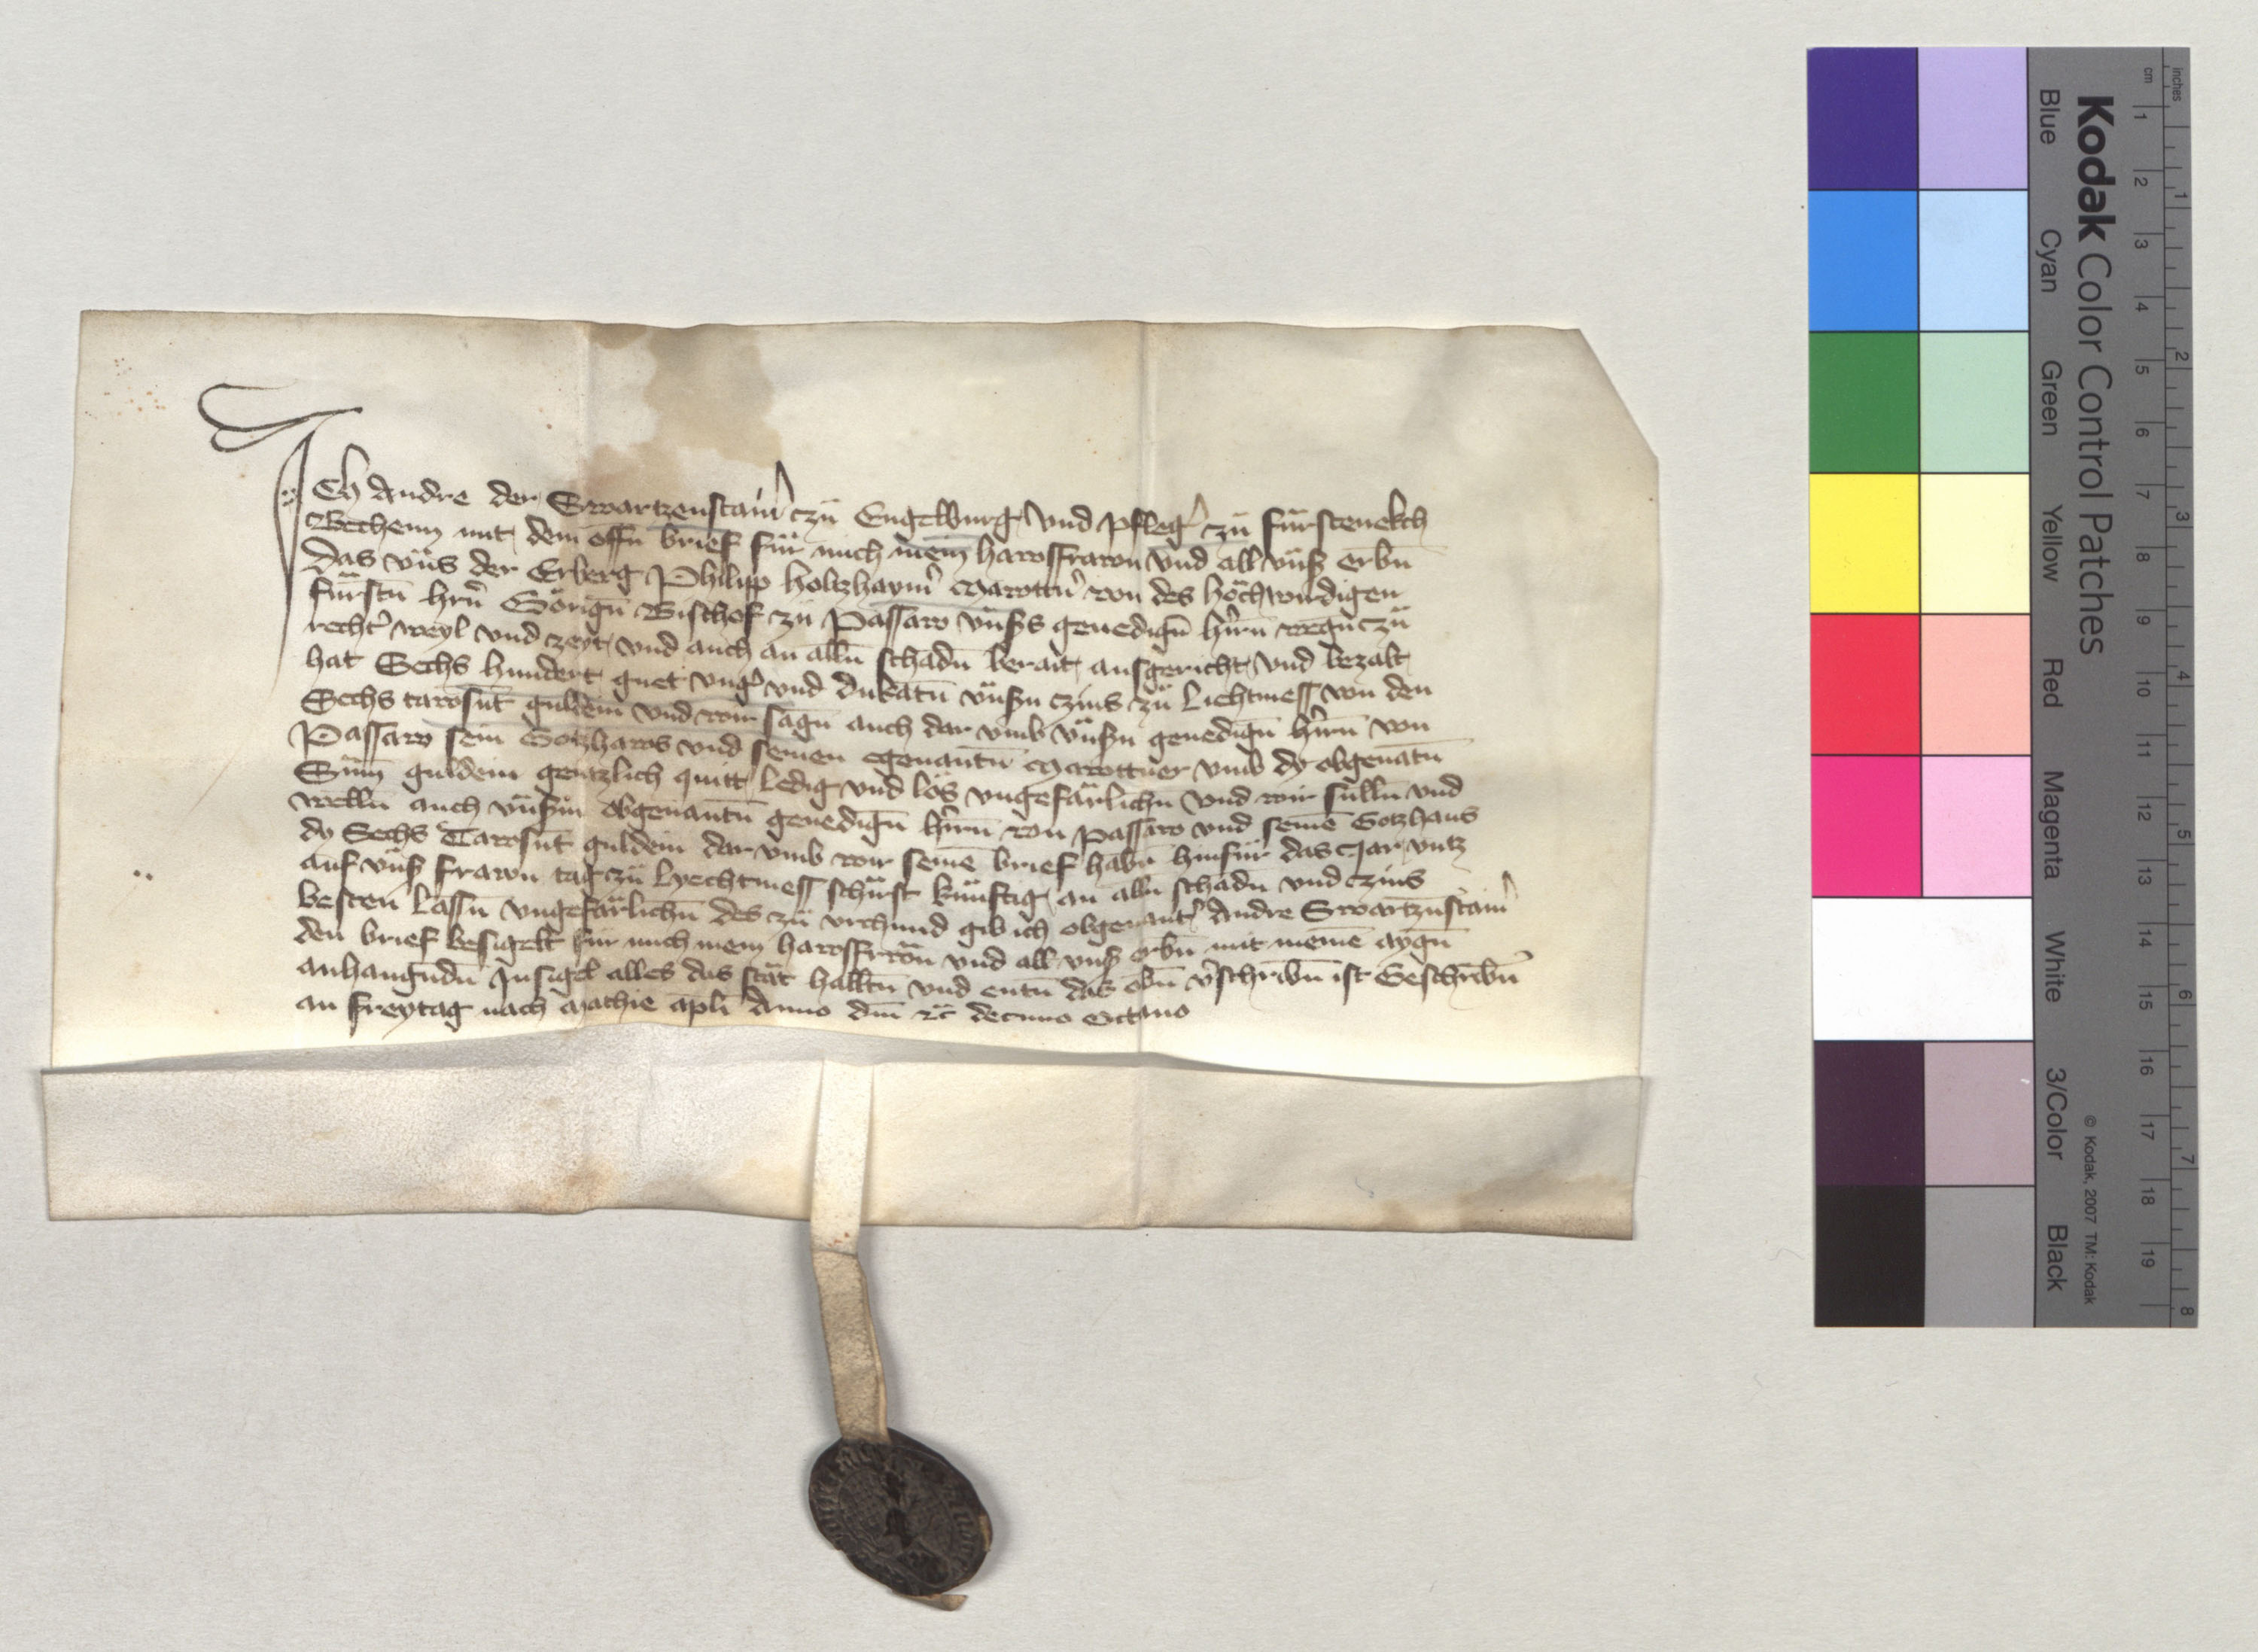 Ich Andre der Swartzenstain̄ czü Engelburg vnd pfleg̉ zü fürstenekch
Bechenn mit dem offn̄ brief für mich mein hawsfrawn vnd all vnß erbn̄
das vns der Erberg Philipp holtzhaym̉ Mawttn̉ von des hochwirdigen
fürstn̄ hrn̄ Görign̄ Bischof zü Passaw vnsßs genedign̄ hrn̄ wegn̄ czü
recht̉ weyl vnd zeyt vnd auch an alln̄ schadn̄ berait ausgericht vnd bezalt
hat Sechs hundert guet vng̉ vnd dukatn̄ vnßn czins zü Liechtmess von den
Sechs tawsn̄t guldein vnd wir sagn̄ auch dar vmb vnßn genedign̄ hrn̄ von
Passaw sein Gotzhaws vnd seinen egenantn̄ Mawttner vmb dy obgenātn̄
Sum̄ guldein gentzlich quitt ledig vnd lös vngefärlichn̄ vnd wir sulln̄ vnd
welln̄ auch vnßm obgenantn̄ genedign̄ hrn̄ von passaw vnd seinē Gotzhaus
dy Sechs Tawsn̄t guldein dar vmb wir seinē brief habn̄ hinfür das Jar vntz
auf vnß frawn tag zü Lyechtmess schirst künftig an alln̄ schadn̄ vnd czins
besten lassn̄ vngefärlichn̄ des zü vrchund gib ich obgenant̉ Andre Swartznstain̄
den brief besigelt für mich mein hawsfrawn vnd all vnß erbn̄ mit meinē aygn̄
anhangundn̄ Insigel alles das stät halltn̄ vnd entn̄ das obn̄ v̉schribn̄ ist Geschribn̄
an freytag nach Mathie apl̄i Anno dn̄i ꝛc̄ decimo octauo
Kodak Color Control Patches
© Kodak, 2007 TM: Kodak
Blue Cyan Green Yellow Red Magenta White 3/Color Black
cm 1 2 3 4 5 6 7 8 9 10 11 12 13 14 15 16 17 18 19
inches 1 2 3 4 5 6 7 8